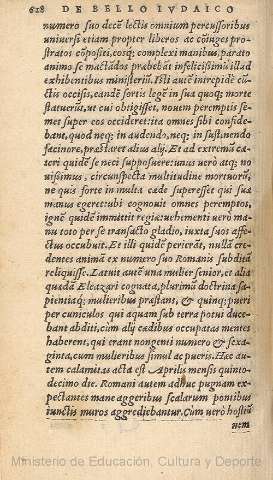 618 DE BELLO IVDAICO
numero suo decẽ lectis omnium percussoribus
universi etiam propter liberos ac cõiuges pro-
stratos cõpositi, eosq; complexi manibus, parato
animo se mactãdos præbebãt infelicissimũ illud
exhibentibus ministeriũ. Isti autẽ intrepidè cũ-
ctis occisis, eandẽ sortis legẽ in sua quoq; morte
statuerũt, ut cui obtigisset, nouem peremptis se-
met super eos occideret: ita omnes sibi confide-
bant, quod neq; in audendo, neq; in sustinendo
facinore, præstaret alius alij. Et ad extremũ cæ-
teri quidẽ se neci supposuere: unus verò atq; no
uissimus, circumspecta multitudine mortuorũ,
ne quis forte in multa cæde superesset qui sua
manus egeret: ubi cognouit omnes peremptos,
ignẽ quidẽ immittit regiæ: uehementi uerò ma-
nu toto per se transacto gladio, iuxta suos affe-
ctus occubuit. Et illi quidẽ perierãt, nullã cre-
dentes animã ex numero suo Romanis subditã
reliquisse. Latuit autẽ una mulier senior, et alia
quædã Eleazari cognata, plurimũ doctrina sa-
pientiaq; mulieribus præstans, & quinq; pueri
per cuniculos qui aquam sub terra potui duce-
bant abditi, cùm alij cædibus occupatas mentes
haberent, qui erant nongenti numero & sexa-
ginta, cum mulieribus simul ac pueris. Hæc au-
tem calamitas acta est Aprilis mensis quinto-
decimo die. Romani autem adhuc pugnam ex-
pectantes mane aggeribus scalarum pontibus
iunctis muros aggrediebantur. Cùm uerò hostiũ
nem
Ministerio de Educación, Cultura y Deporte